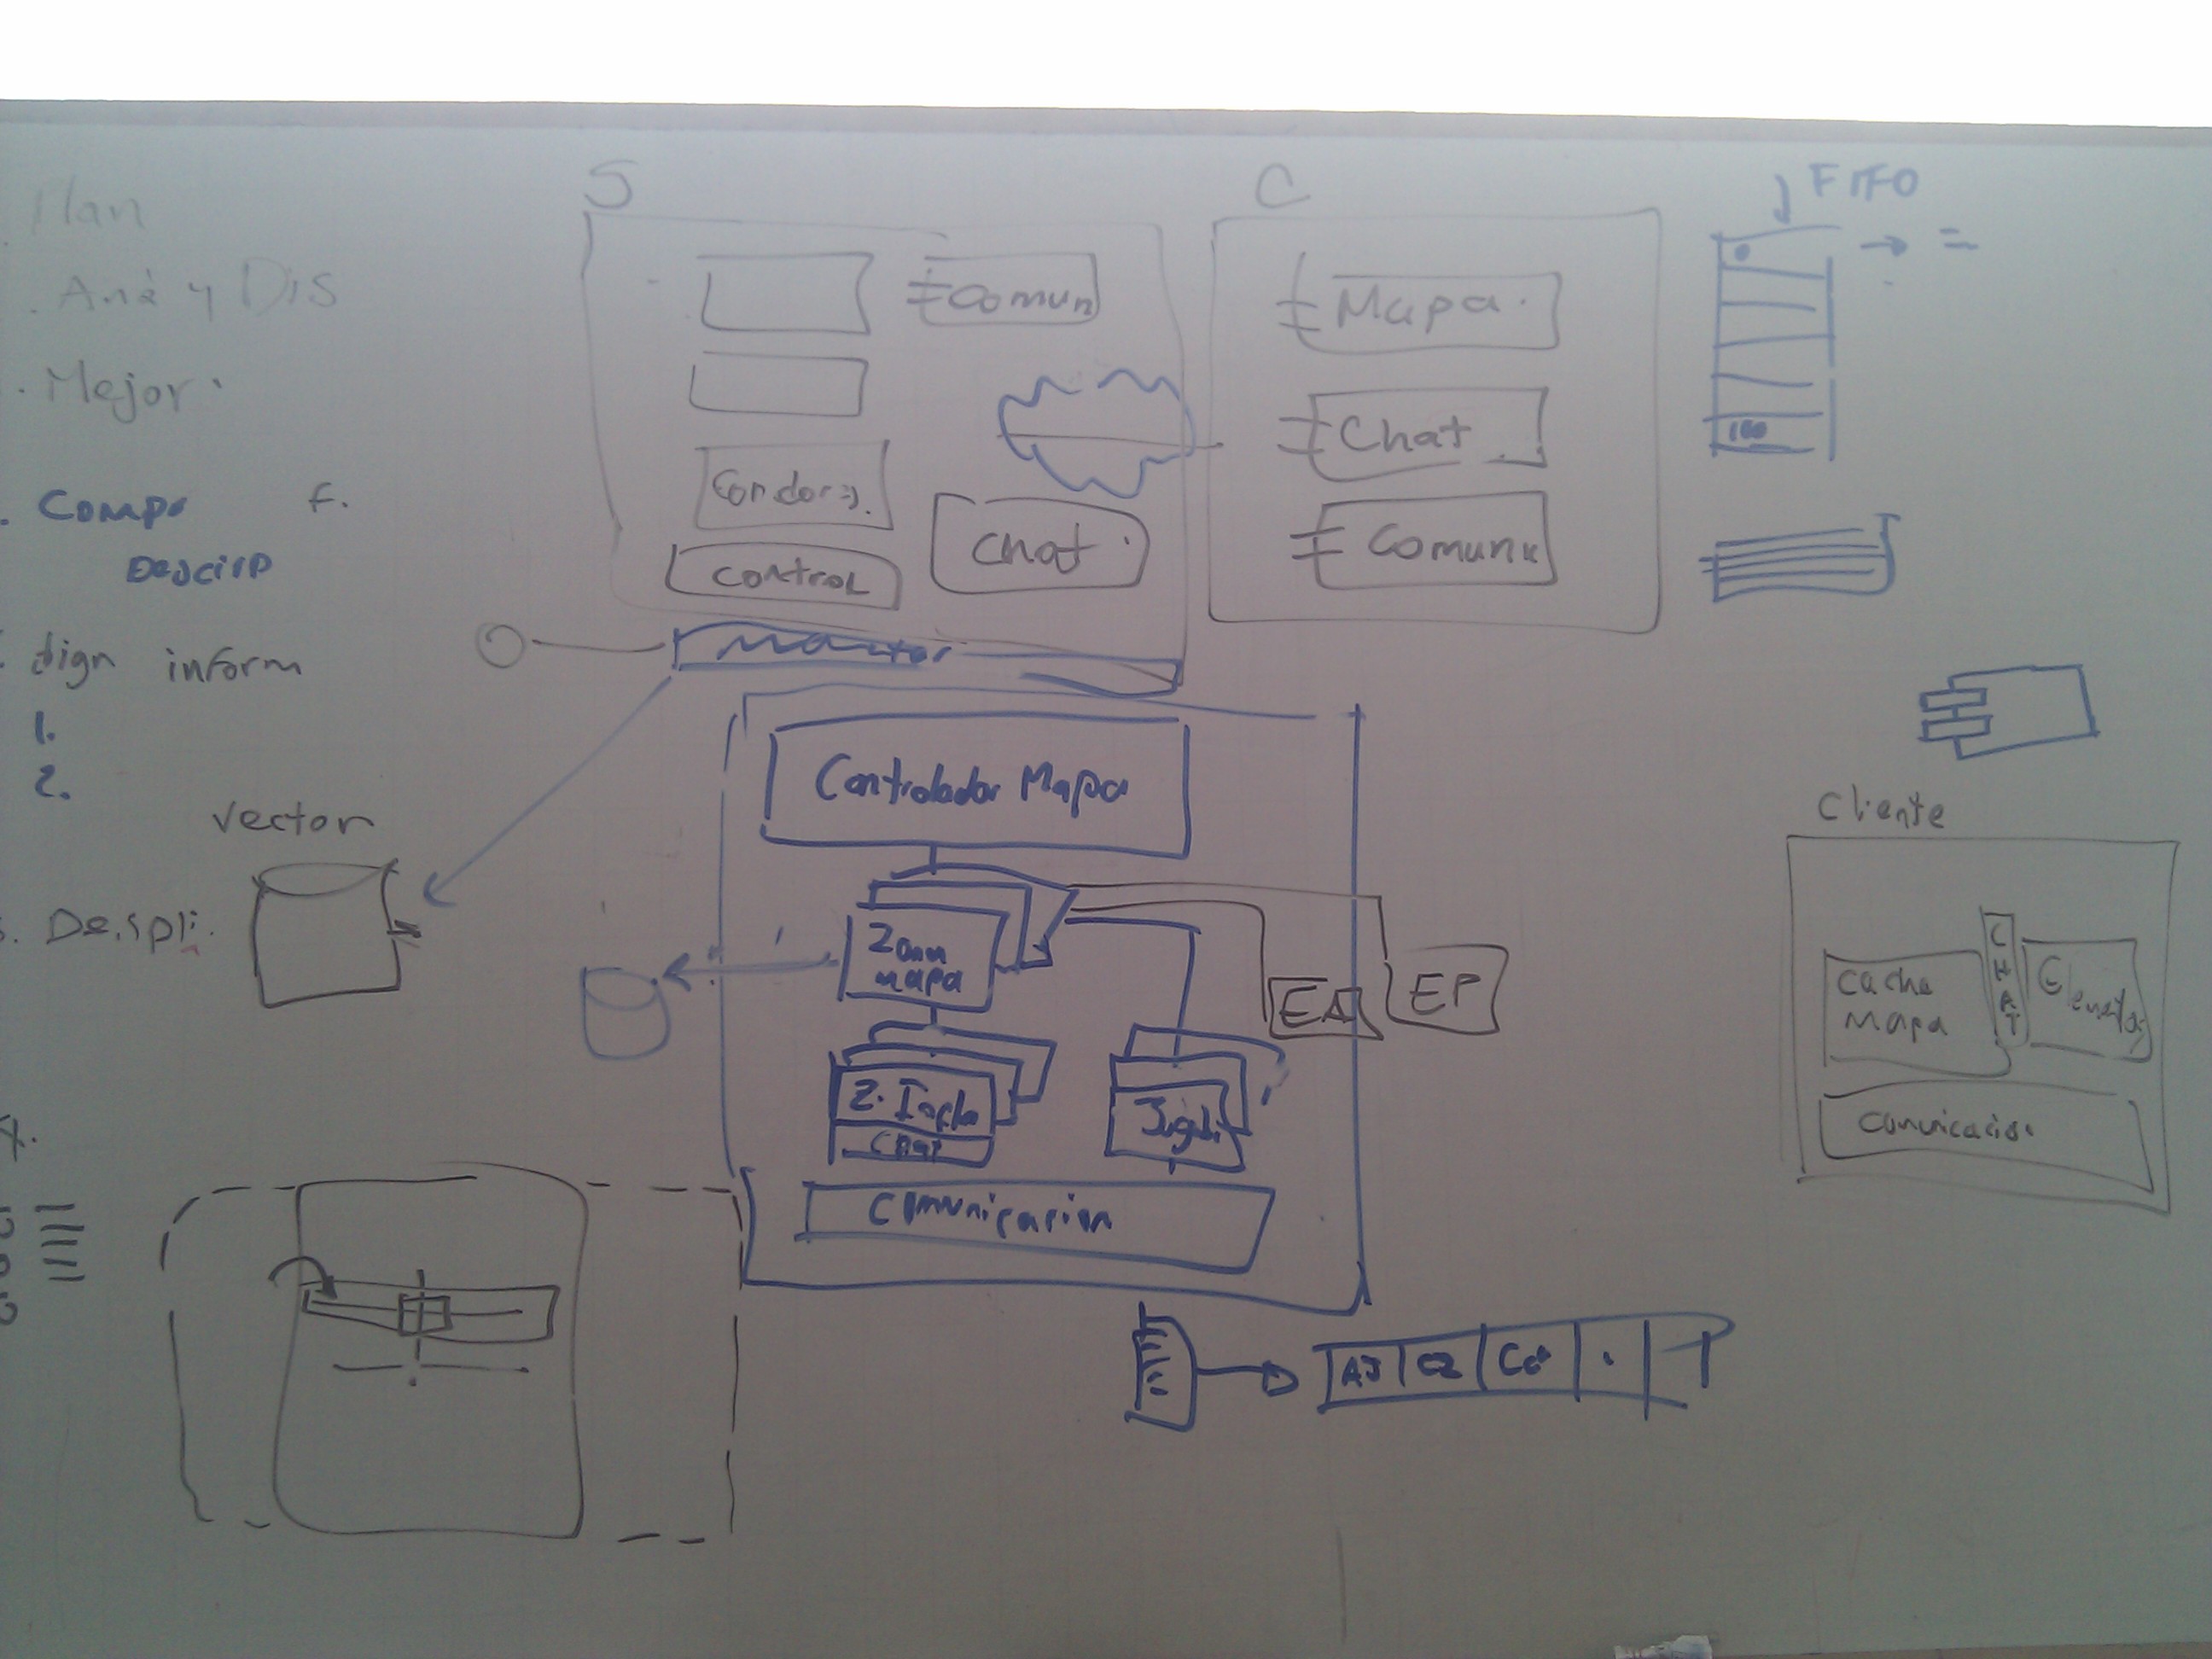 Plan
. Aná y Dis
. Mejor.
. Compo F.
Descirp
dign inform
1.
2.
vector
3. Despli.
4.
S
Comun
Condor
Control
Chat
Monitor
C
Mapa
Chat
Comuni
FIFO
100
Controlador Mapa
Zona
mapa
EA
EP
Chat
Comunicacion
AJ
Cliente
Cache
Mapa
CHAT
Elementos
Comunicacio